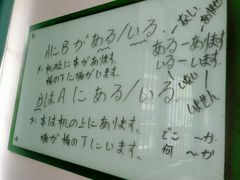 AにBがある/いる.
ない
ある－あります
いる－います.
ない
ません
文. 机の上に本があります.
椅の下に猫がいます.
BはAにある/いる.
文. 本は机の上にあります.
猫が椅の下にいます.
どこ ～か.
何 ～か